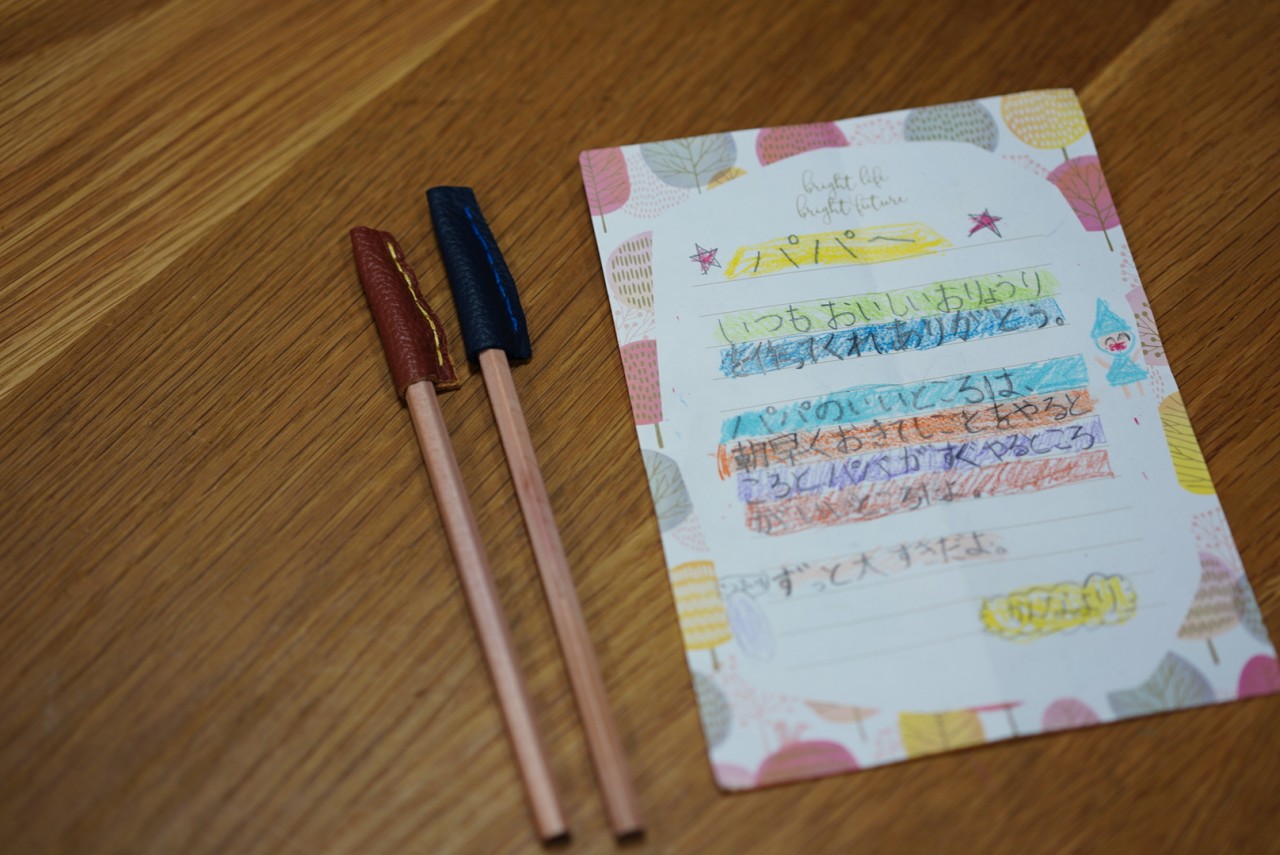 bright life
bright future
パパへ
いつもおいしいおりょうり
を作ってくれありがとう。
パパのいいところは、
朝早くおきてしごとをやると
ころとパパがすぐやるところ
がいいところだよ。
ずっと大すきだよ。
より